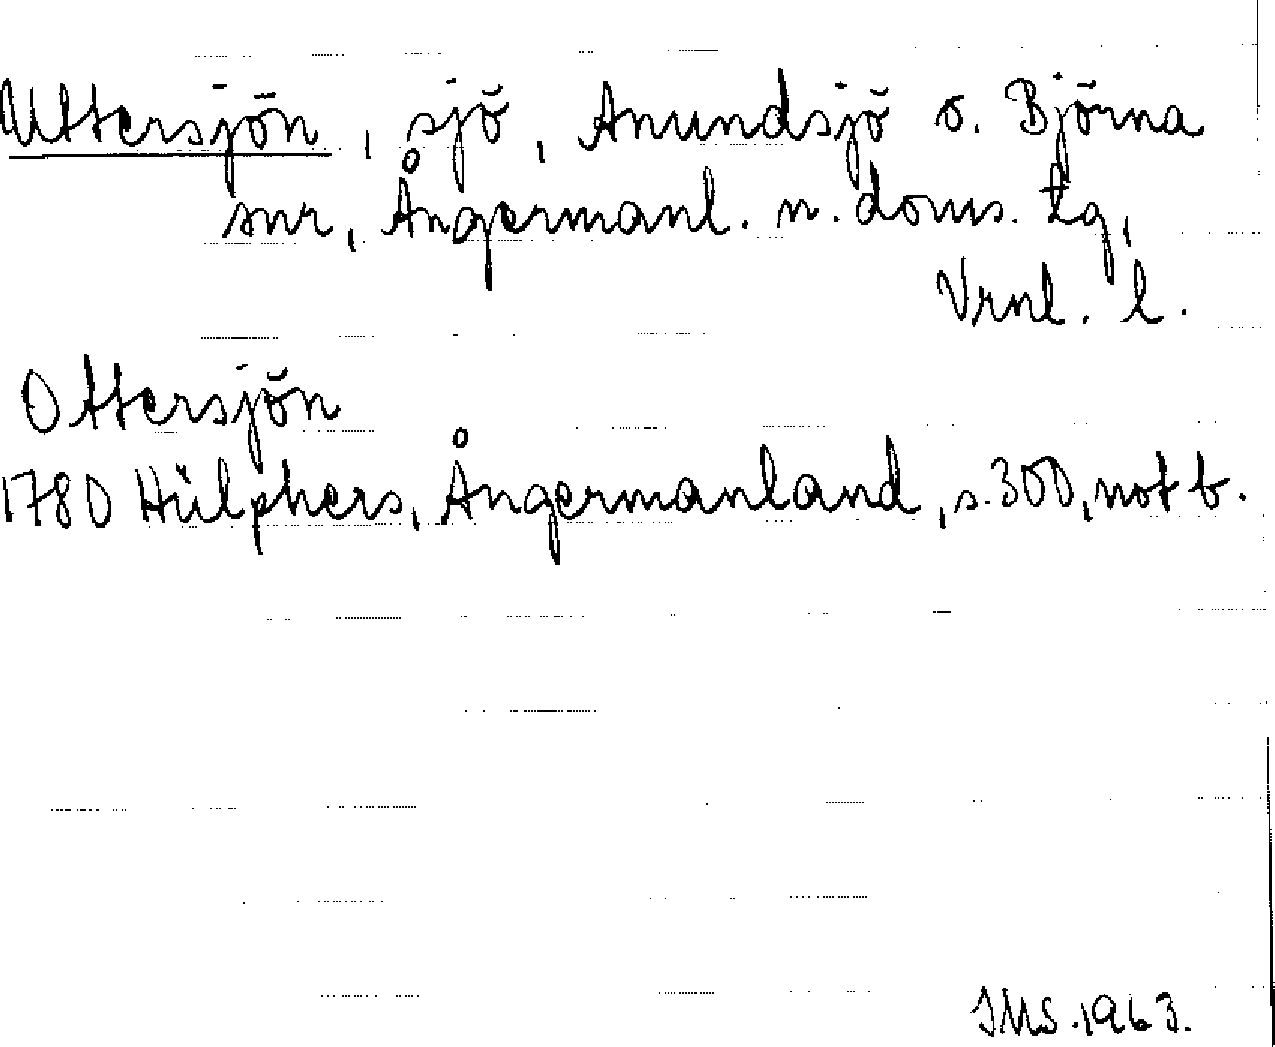 Uttersjön, sjö, Anundsjö o. Björna
snr, Ångermanl. n. doms. tg,
Vrnl. l.
Ottersjön
1780 Hülphers, Ångermanland, s. 300, not b.
IMS. 1963.